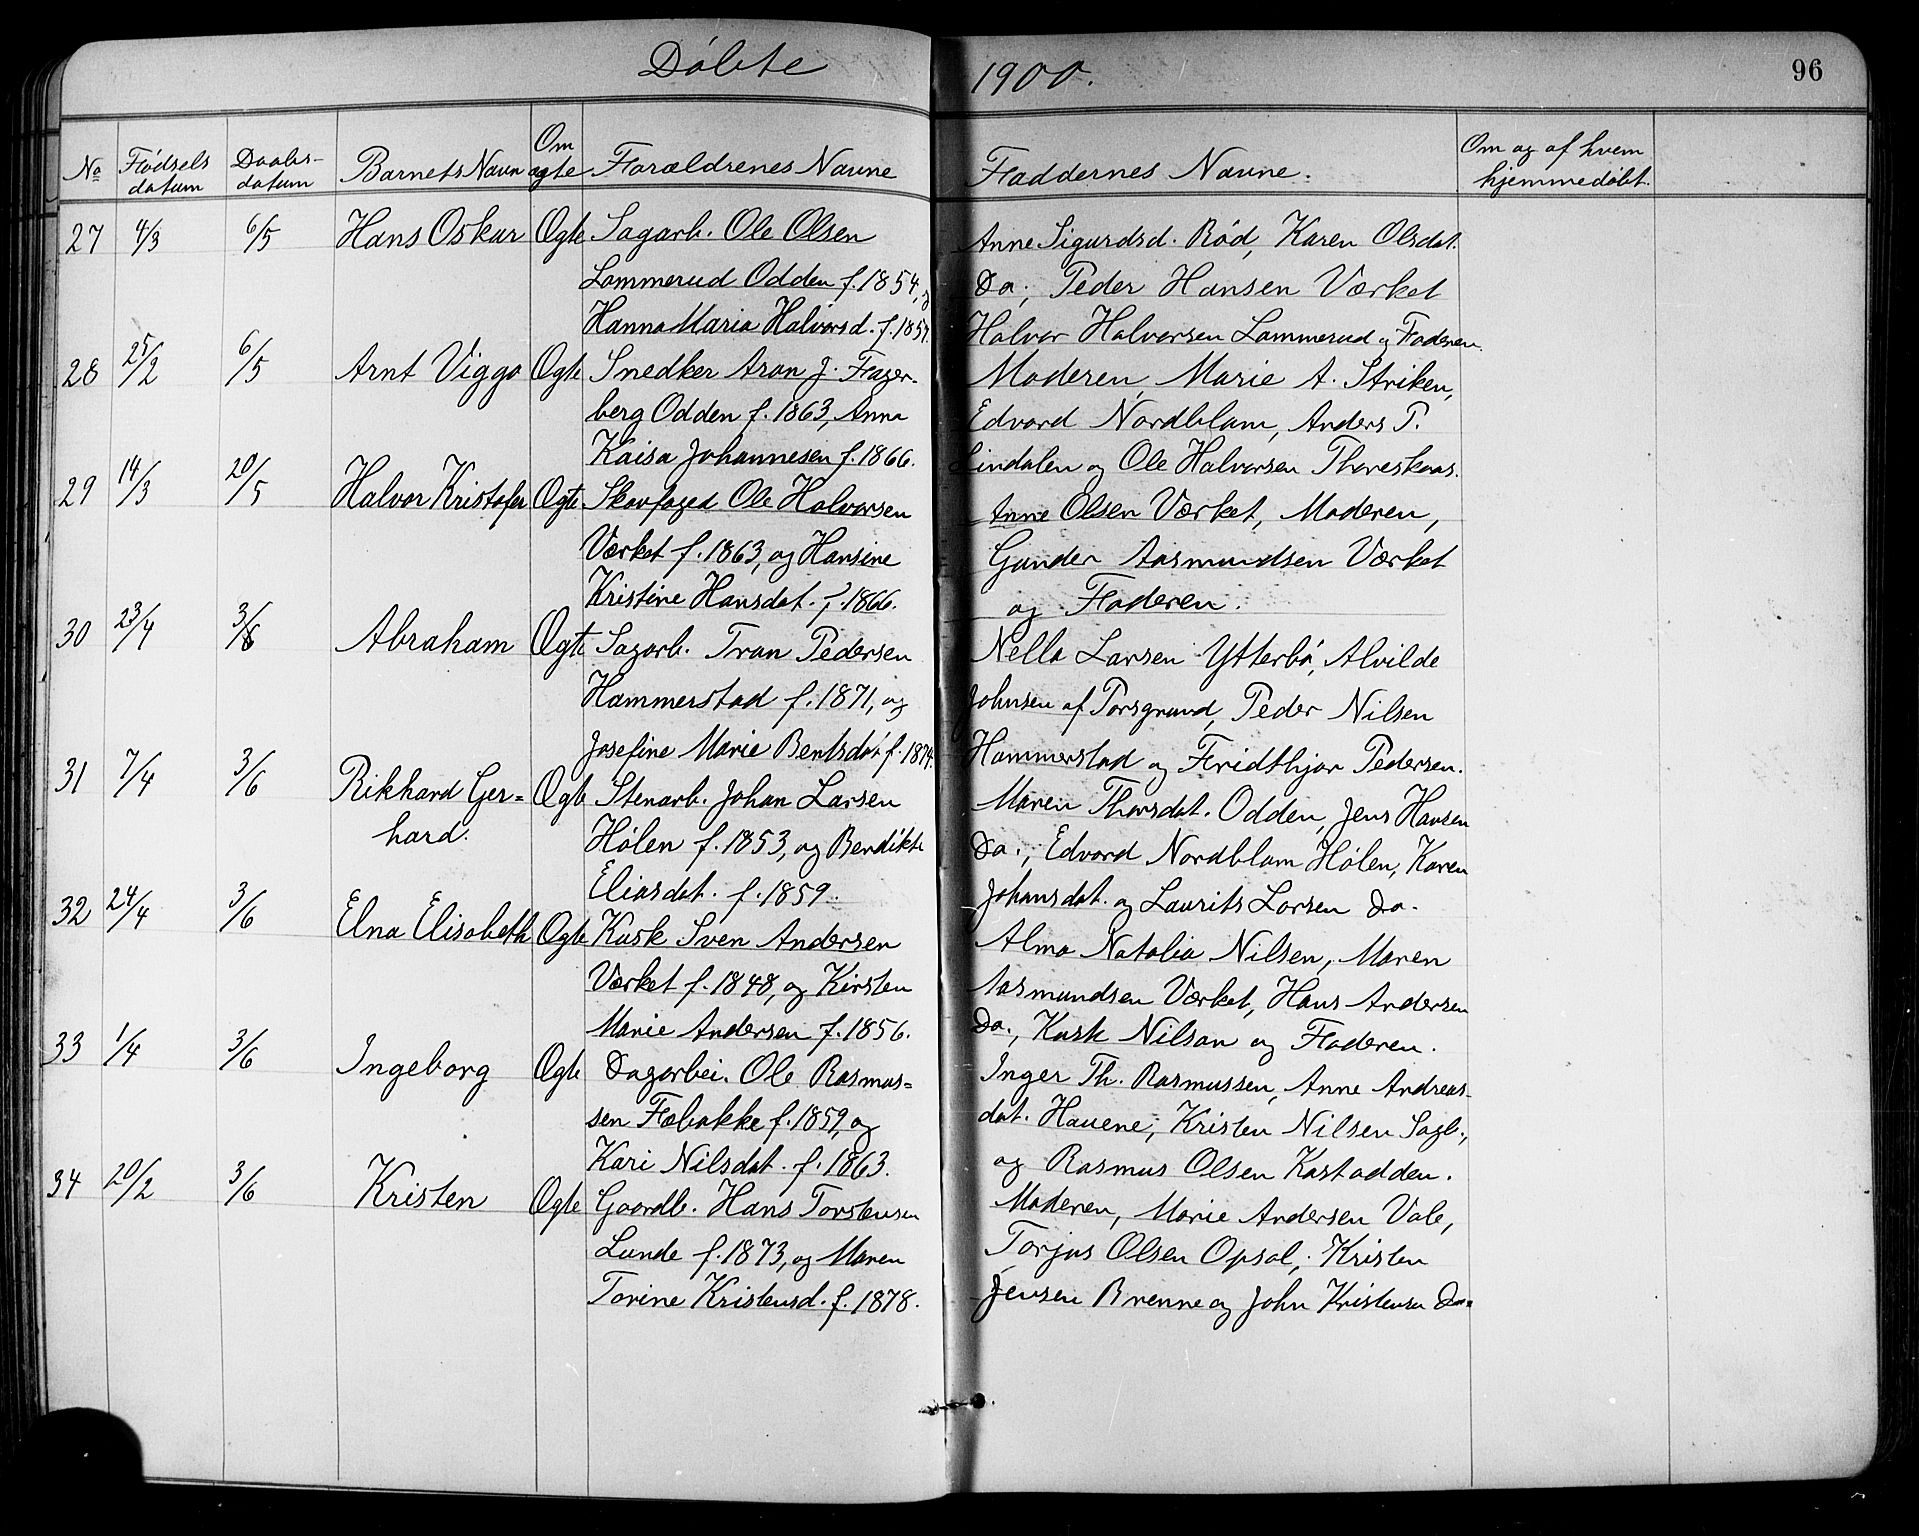 Døbte 1900. 96
No Fødsels datum Daabs- datum Barnets Navn Om ægte Forældrenes Navne Faddernes Navne. Om og af hvem hjemmedøbt.
27 4/3 6/5 Hans Oskar Ægte Sagarb. Ole Olsen Anne Sigurdsd. Rød, Karen Olsdat.
Lammerud Odden f. 1854, og Do., Peder Hansen Værket
Hanna Maria Halvorsd. f. 1857. Halvor Halvorsen Lammerud og Faderen.
28 25/2 6/5 Arnt Viggo Ægte Snedker Aron J. Fager- Moderen, Marie A. Striken,
berg Odden f. 1863, Anna Edvard Nordblom, Anders P.
Kaisa Johannesen f. 1866. Lindalen og Ole Halvorsen Thoreskaas.
29 14/3 20/5 Halvor Kristofer Ægte Skovfoged Ole Halvorsen Anne Olsen Værket, Moderen,
Værket f. 1863, og Hansine Gunder Aasmundsen Værket
Kristine Hansdat. f. 1866. og Faderen.
30 23/4 3/6 Abraham Ægte Sagarb. Tron Pedersen Nella Larsen Ytterbø, Alvilde
Hammerstad f. 1871, og Johnsen af Porsgrund, Peder Nilsen
Josefine Marie Bentsdat f. 1874. Hammerstad og Fridthjor Pedersen.
31 7/4 3/6 Rikhard Ger- Ægte Stenarb. Johan Larsen Maren Thorsdat. Odden, Jens Hansen
hard. Hølen f. 1853, og Bendikte Do., Edvard Nordblom Hølen, Karen
Eliasdat. f. 1859. Johansdat. og Laurits Larsen Do.
32 24/4 3/6 Elna Elisabeth Ægte Kusk Sven Andersen Alma Natalia Nilsen, Maren
Værket f. 1848, og Kirsten Aasmundsen Værket, Hans Andersen
Marie Andersen f. 1856. Do., Kusk Nilson og Faderen.
33 1/4 3/6 Ingeborg Ægte Dagarbei. Ole Rasmus- Inger Th. Rasmussen, Anne Andreas-
sen Fæbakke f. 1859, og dat. Hauene, Kristen Nilsen Sagb.,
Kari Nilsdat. f. 1863. og Rasmus Olsen Kastodden.
34 20/2 3/6 Kristen Ægte Gaardb. Hans Torstensen Moderen, Marie Andersen Vale,
Lunde f. 1873, og Maren Torjus Olsen Opsal, Kristen
Torine Kristensd. f. 1878. Jensen Brenne og John Kristensen Do.